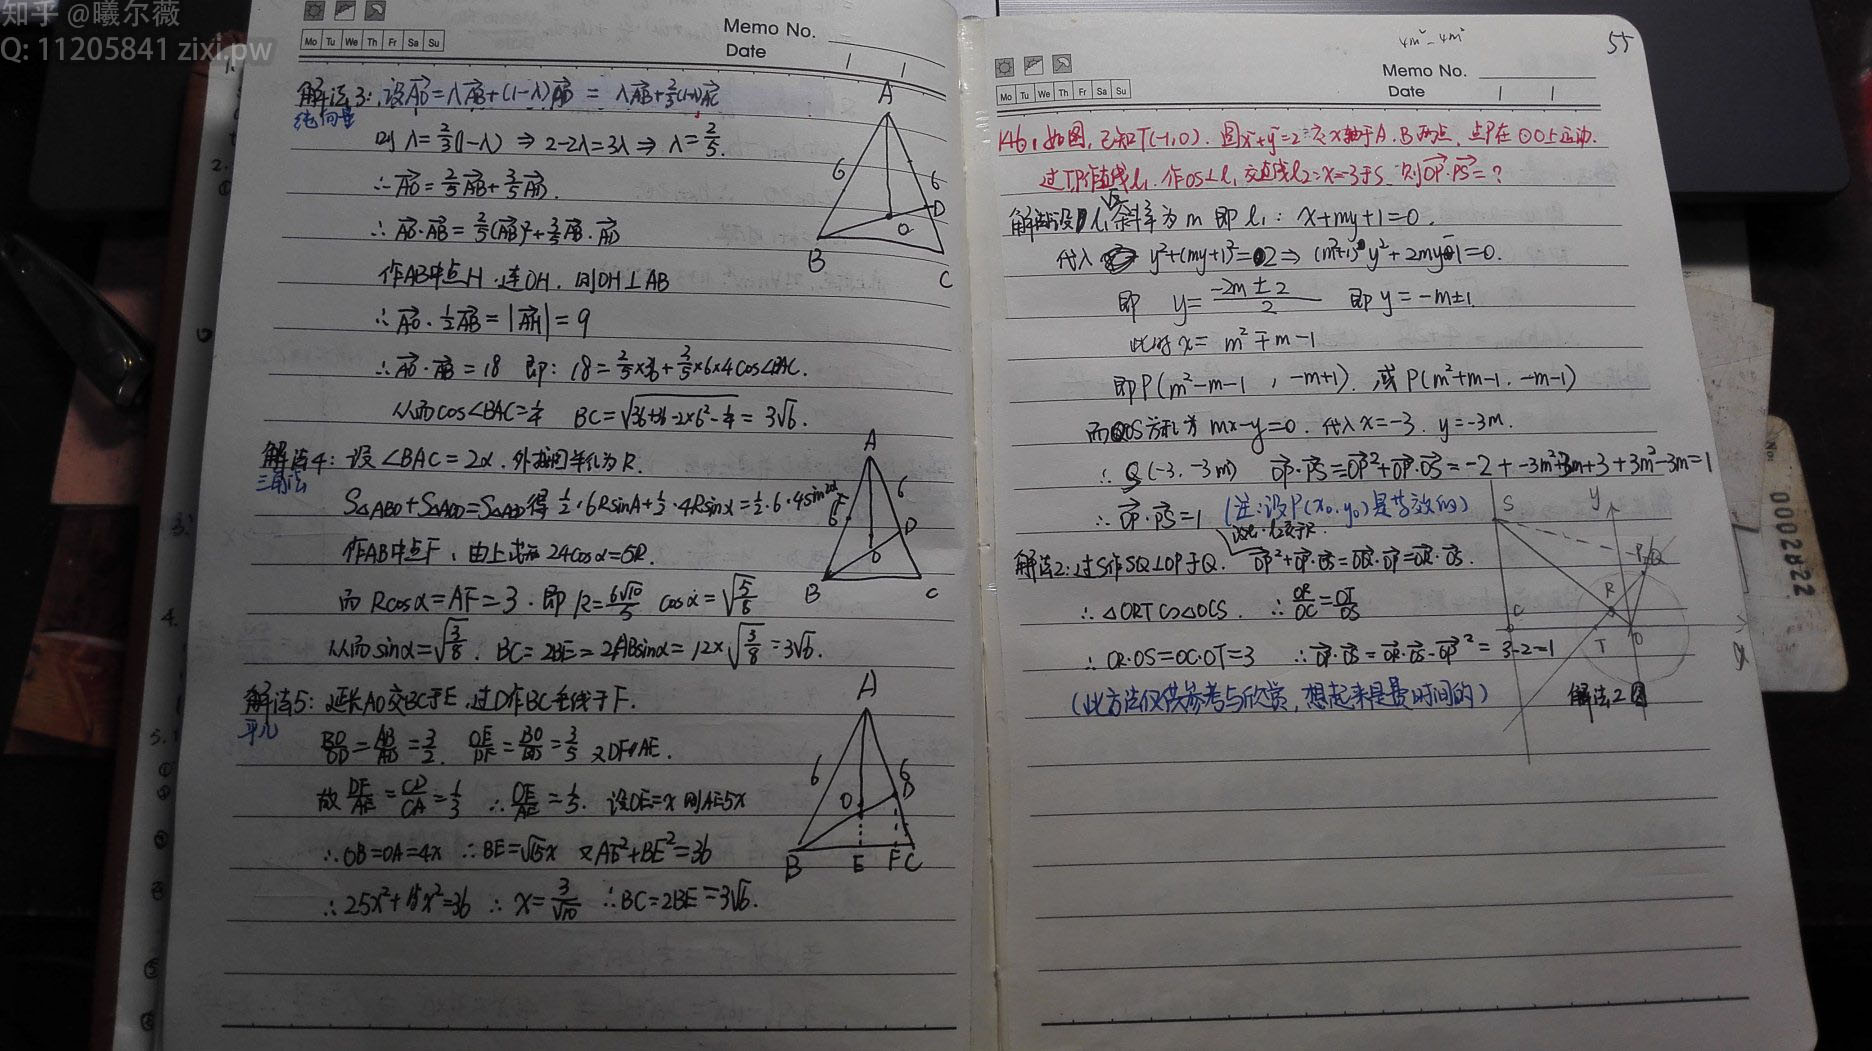 知乎 @曦尔薇
Q: 11205841 zixi.pw
Memo No.
Mo Tu We Th Fr Sa Su
Date
解法3: 设AO=λAB+(1-λ)AD = λAB+2/3(1-λ)AC
纯向量
则 λ=2/3(1-λ) ⇒ 2-2λ=3λ ⇒ λ=2/5.
∴AO=2/5AB+3/5AD.
∴AO·AB=2/5(AB)²+3/5AB·AD
作AB中点H.连OH.则OH⊥AB
∴AO·1/2AB=|AH|=9
∴AO·AB=18 即: 18=2/5×36+3/5×6×4cos∠BAC.
从而cos∠BAC=1/4 BC=√(36+36-2×6²·1/4)=3√6.
A
6
6
D
O
B
C
解法4: 设∠BAC=2α.外接圆半径为R.
三角法
S△ABO+S△AOD=S△ABD得 1/2·6Rsinα+1/2·4Rsinα=1/2·6·4sin2α
作AB中点F,由上式知 24cosα=5R.
而 Rcosα=AF=3.即 R=6√10/5 cosα=√(5/8)
从而sinα=√(3/8). BC=2BE=2ABsinα=12×√(3/8)=3√6.
A
F
6
6
D
O
B
C
解法5: 延长AO交BC于E.过D作BC垂线于F.
平几
BO/OD=AB/AD=3/2. OE/DF=BO/BD=3/5 又DF∥AE.
故DF/AE=CD/CA=1/3 ∴OE/AE=1/5. 设OE=x 则AE=5x
∴OB=OA=4x ∴BE=√15x 又AE²+BE²=36
∴25x²+15x²=36 ∴x=3/√10 ∴BC=2BE=3√6.
A
6
6
D
O
B
E
F
C
4m²-4m²
55
Memo No.
Mo Tu We Th Fr Sa Su
Date
146,如图,已知T(-1,0).圆x²+y²=2交x轴于A.B两点,点P在⊙O上运动.
过TP作直线l₁.作OS⊥l₁交直线l₂:x=-3于S.则OP·PS=?
解法1:设l₁斜率为m 即l₁: x+my+1=0.
代入 y²+(my+1)²=2 ⇒ (m²+1)y²+2my-1=0.
即 y=(-2m±2)/2 即y=-m±1.
此时x= m²∓m-1
即P(m²-m-1 , -m+1).或P(m²+m-1. -m-1)
而OS方程为 mx-y=0. 代入x=-3. y=-3m.
∴Q(-3,-3m) OP·PS=OP²+OP·OS=-2+-3m²+3m+3+3m²-3m=1
∴OP·PS=1 (注:设P(x₀,y₀)是等效的)
解法2:过S作SQ⊥OP于Q. OP²+OP·PS=OQ·OP=OR·OS.
∴△ORT∽△OCS. ∴OR/OC=OT/OS
∴OR·OS=OC·OT=3 ∴OP·PS=OR·OS-OP²=3-2=1
(此方法仅供参考与欣赏,想起来是费时间的)
S
y
P
Q
R
C
T
O
x
解法2图
No:
0002822